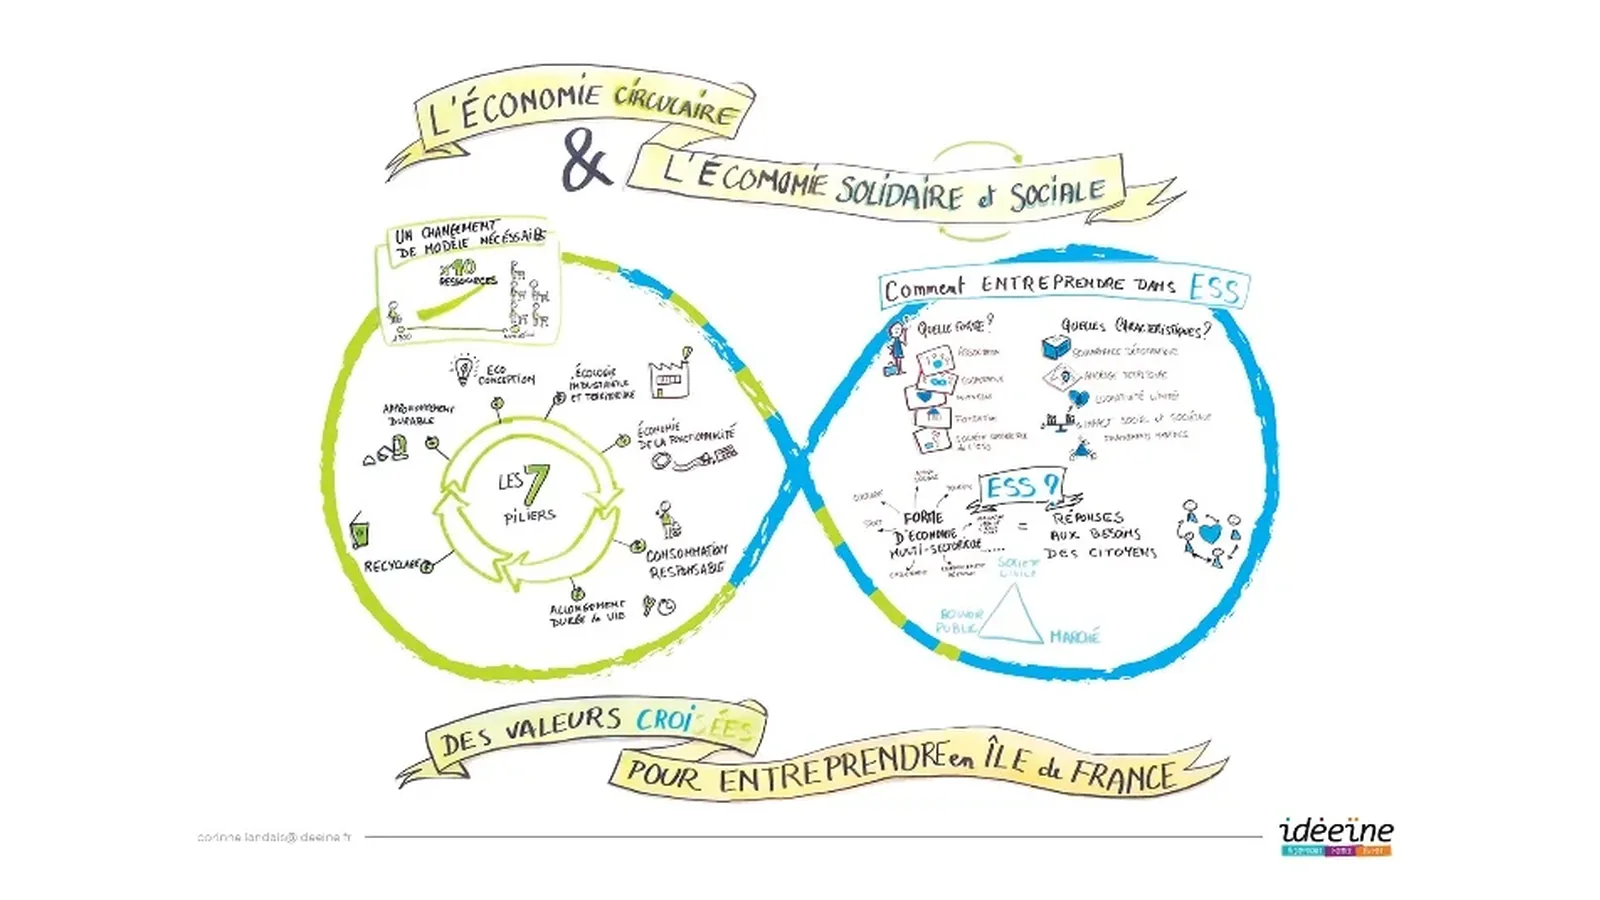 L'ÉCONOMIE CIRCULAIRE
&
L'ÉCONOMIE SOLIDAIRE et SOCIALE
UN CHANGEMENT
DE MODÈLE NÉCÉSSAIRE
x10
RESSOURCES
1900
ECO
CONCEPTION
ÉCOLOGIE
INDUSTRIELLE
ET TERRITOIRE
APPROVISIONNEMENT
DURABLE
ÉCONOMIE
DE LA FONCTIONNALITÉ
LES 7
PILIERS
RECYCLAGE
CONSOMMATION
RESPONSABLE
ALLONGEMENT
DURÉE de VIE
Comment ENTREPRENDRE DANS ESS
QUELLE FORME ?
ASSOCIATION
COOPÉRATIVE
MUTUELLE
FONDATION
QUELLES CARACTERISTIQUES ?
GOUVERNANCE DÉMOCRATIQUE
ANCRAGE TERRITOIRE
LUCRATIVITÉ LIMITÉE
IMPACT SOCIAL ET SOCIÉTAL
ESS ?
FORME
D'ÉCONOMIE
MULTI-SECTORIELLE .....
=
RÉPONSES
AUX BESOINS
DES CITOYENS
SOCIÉTÉ
CIVILE
POUVOIR
PUBLIC
MARCHÉ
DES VALEURS CROISÉES
POUR ENTREPRENDRE en ÎLE de FRANCE
corinne.landais@ideeine.fr
idéeïne